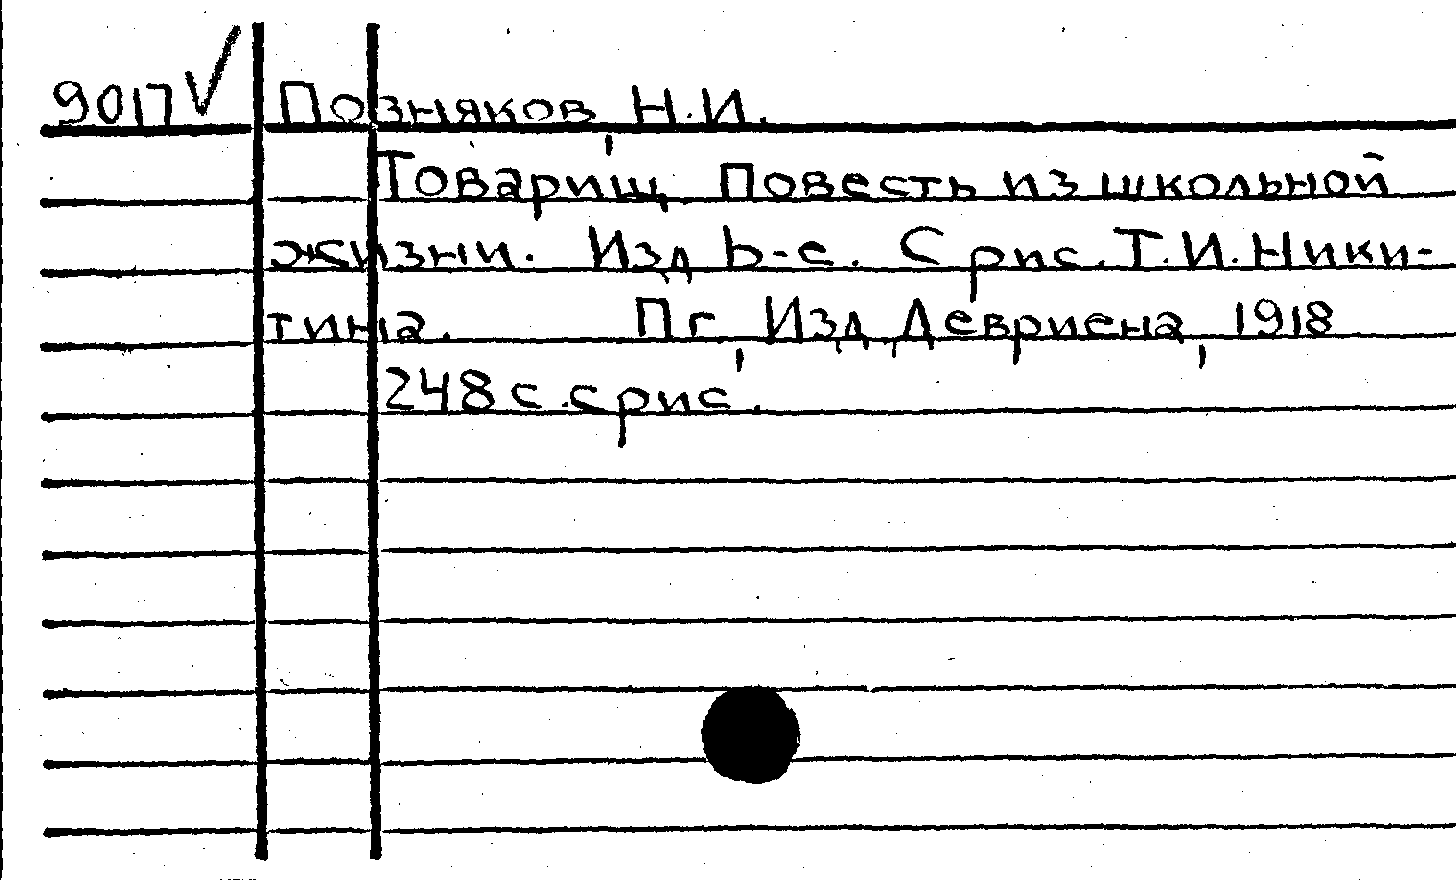 9017 √ Позняков, Н.И.
Товарищ. Повесть из школьной
жизни. Изд 6-е. С рис. Т.И.Ники-
тина. Пг, Изд. Девриена, 1918
248 с. с рис.